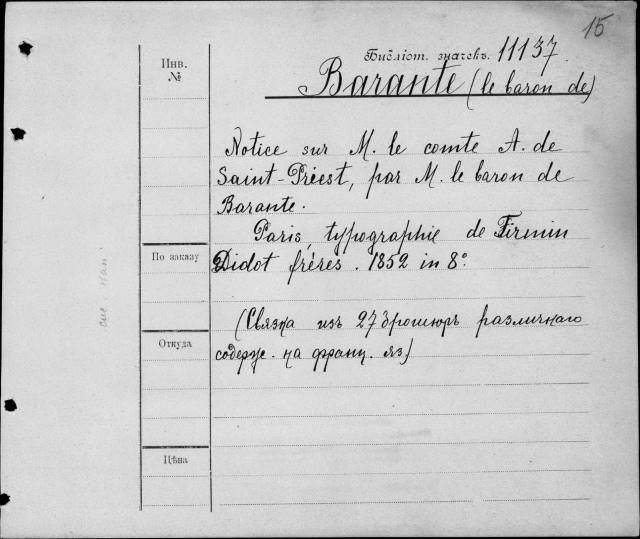 15
Библіот. значекъ. 11137.
Инв.
№
Barante (le baron de)
Notice sur M. le comte A. de
Saint-Priest, par M. le baron de
Barante.
Paris, typographie de Firmin
По заказу
Didot frères. 1852 in 8°.
(Связка изъ 27 брошюръ различнаго
Откуда
содерж. на франц. яз)
Цѣна